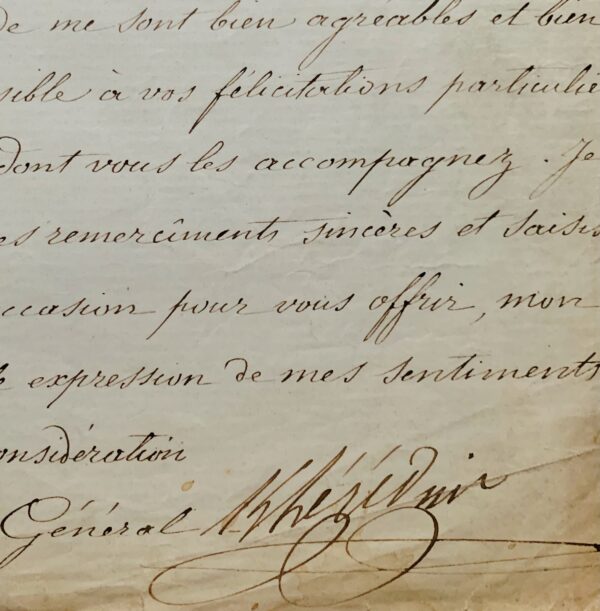 de me sont bien agréables et bien
sible à vos félicitations particuliè
dont vous les accompagnez. Je
es remercîments sincères et saisis
ccasion pour vous offrir, mon
expression de mes sentiments
onsidération
Général